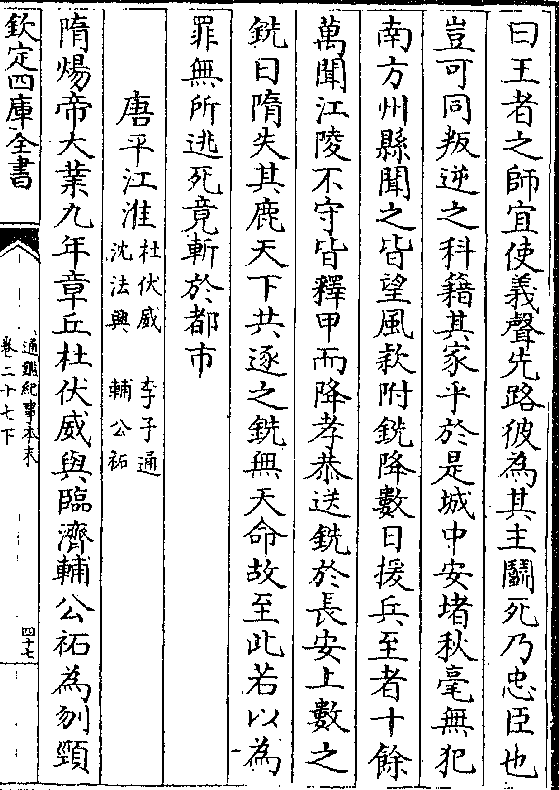 曰王者之師宜使義聲先路彼為其主鬭死乃忠臣也
豈可同叛逆之科籍其家乎於是城中安堵秋毫無犯
南方州縣聞之皆望風欵附銑降數日援兵至者十餘
萬聞江陵不守皆釋甲而降孝恭送銑於長安上數之
銑曰隋失其鹿天下共逐之銑無天命故至此若以為
罪無所逃死竟斬於都市
唐平江淮 杜伏威 李子通
沈法興 輔公祏
隋煬帝大業九年章丘杜伏威與臨濟輔公祏為刎頸
欽定四庫全書
通鑑紀事本末
卷二十七下
四十七